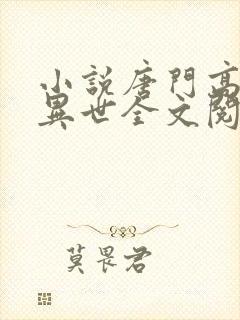 小説唐門高
異世全文閱
莫畏君